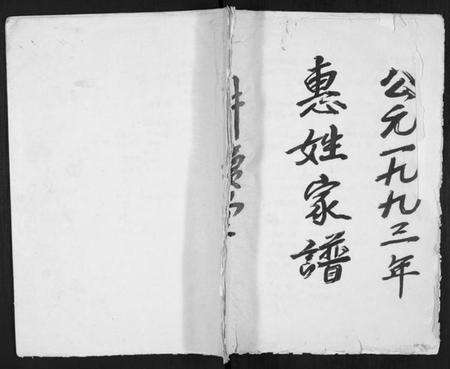 公元一九九三年
惠姓家譜